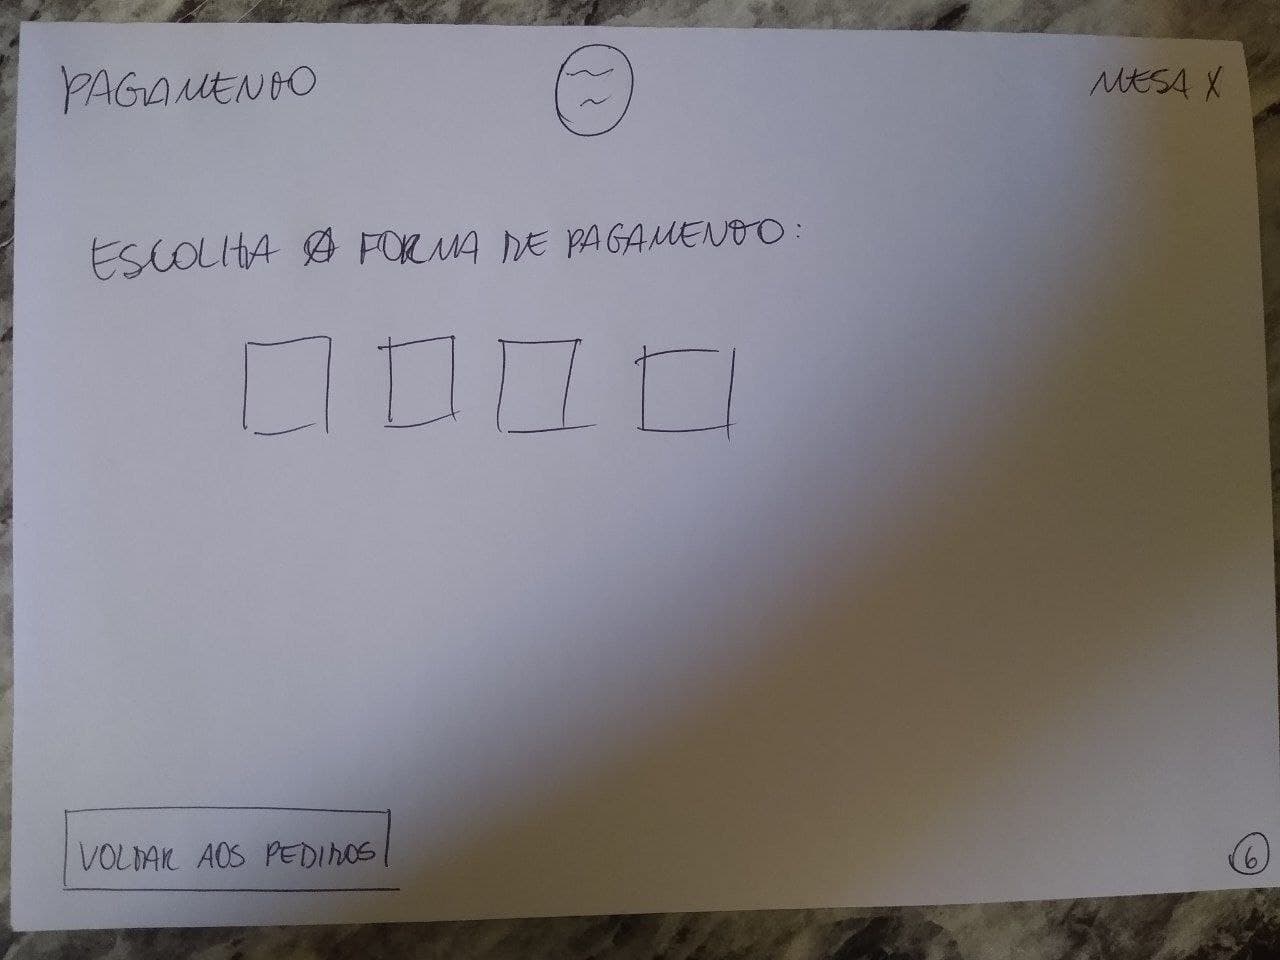 PAGAMENTO
MESA X
ESCOLHA A FORMA DE PAGAMENTO:
VOLTAR AOS PEDIDOS
6